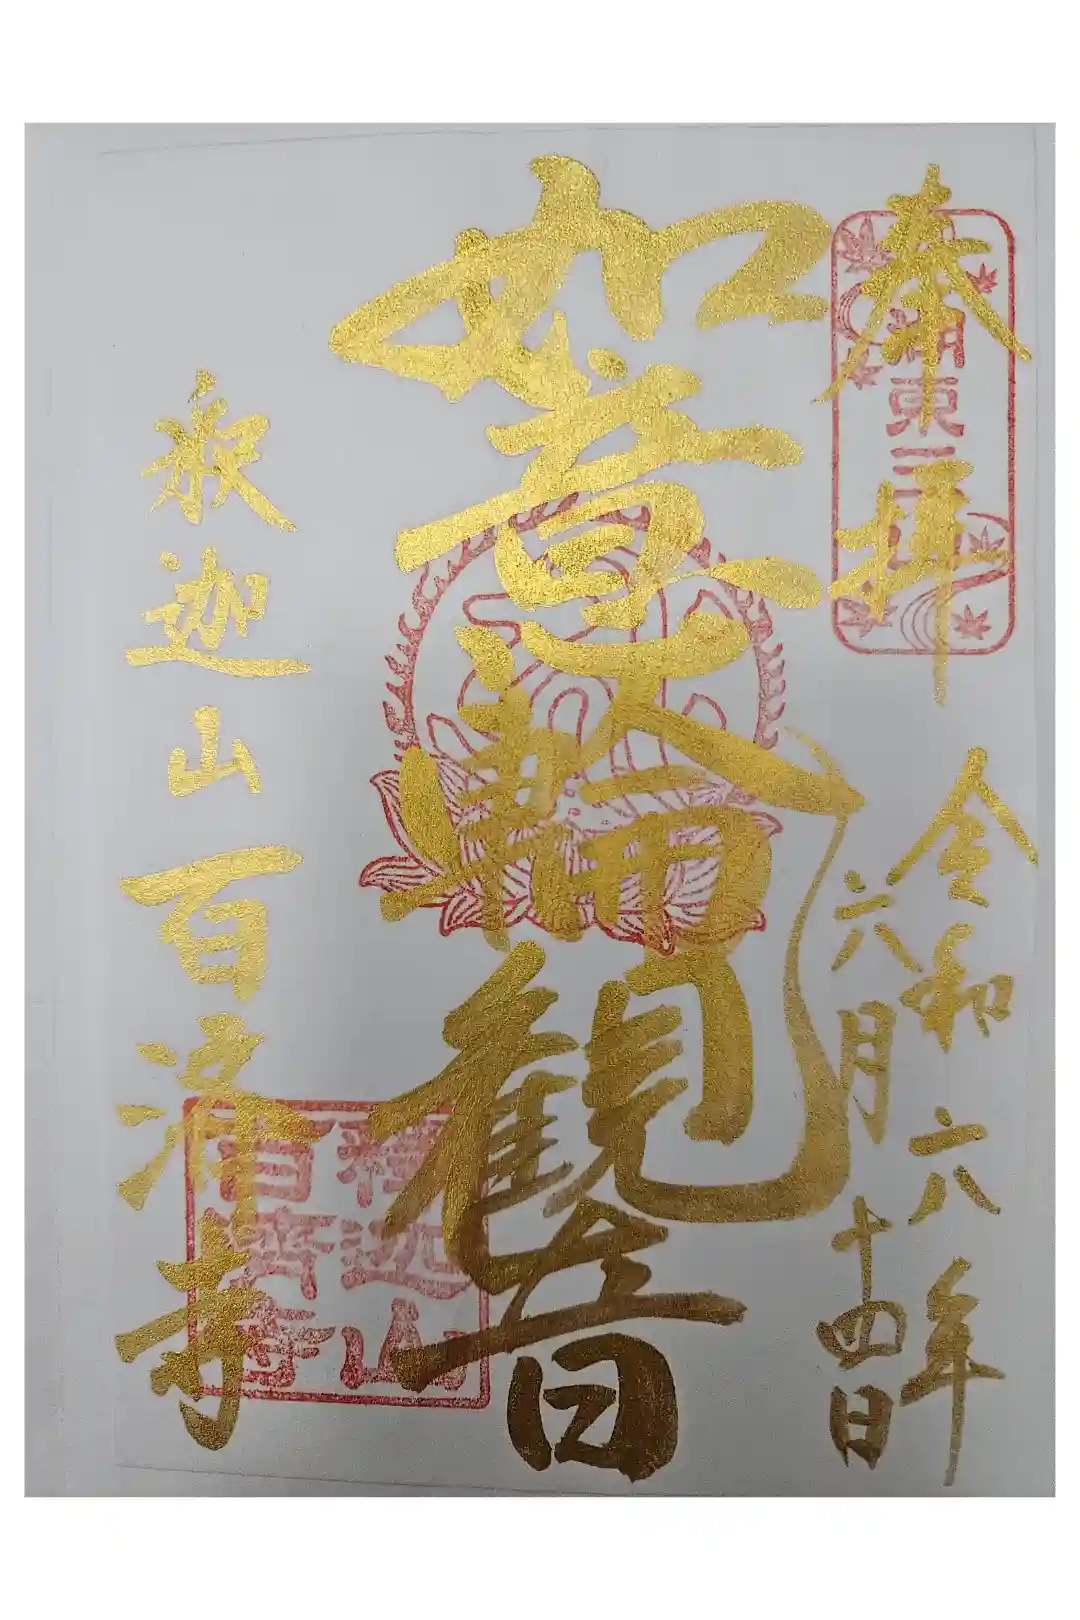 奉拝
湖東三山
令和六年
六月十四日
如意輪観音
釈迦山百済寺
釋迦山
百濟寺